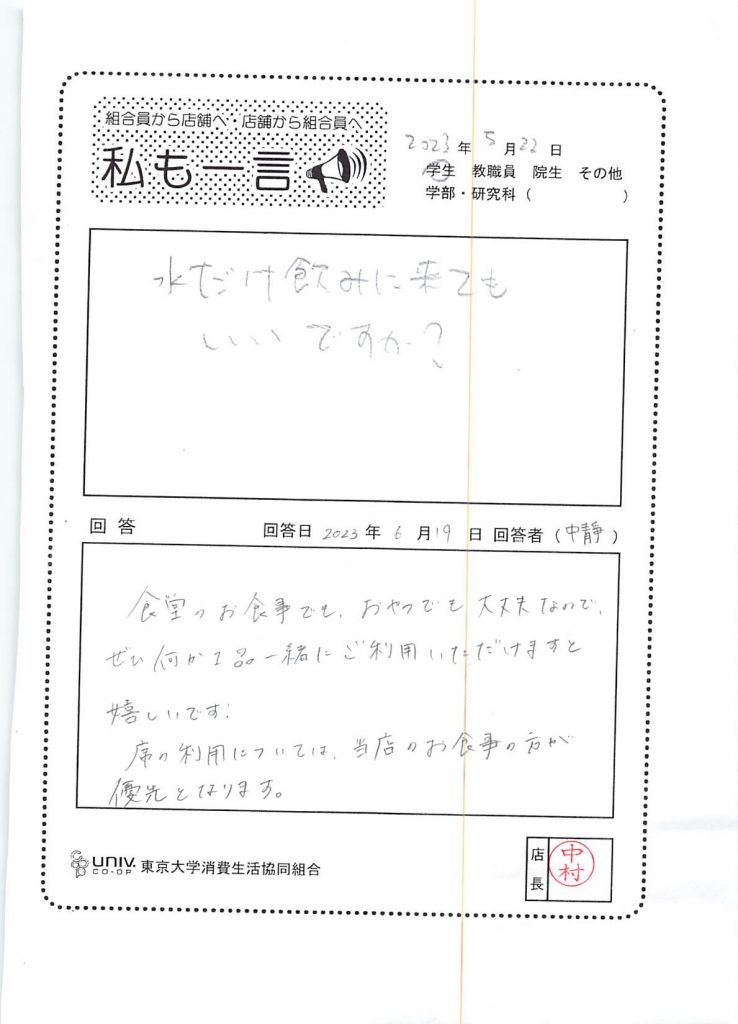 組合員から店舗へ・店舗から組合員へ
私も一言
2023年5月22日
学生 教職員 院生 その他
学部・研究科（ ）
水だけ飲みに来ても
いいですか？
回答 回答日 2023年6月19日 回答者（中静）
食堂のお食事でも、おやつでも大丈夫なので、
ぜひ何か1品一緒にご利用いただけますと
嬉しいです！
席の利用については、当店のお食事の方が
優先となります。
UNIV. CO-OP 東京大学消費生活協同組合
店長
中村